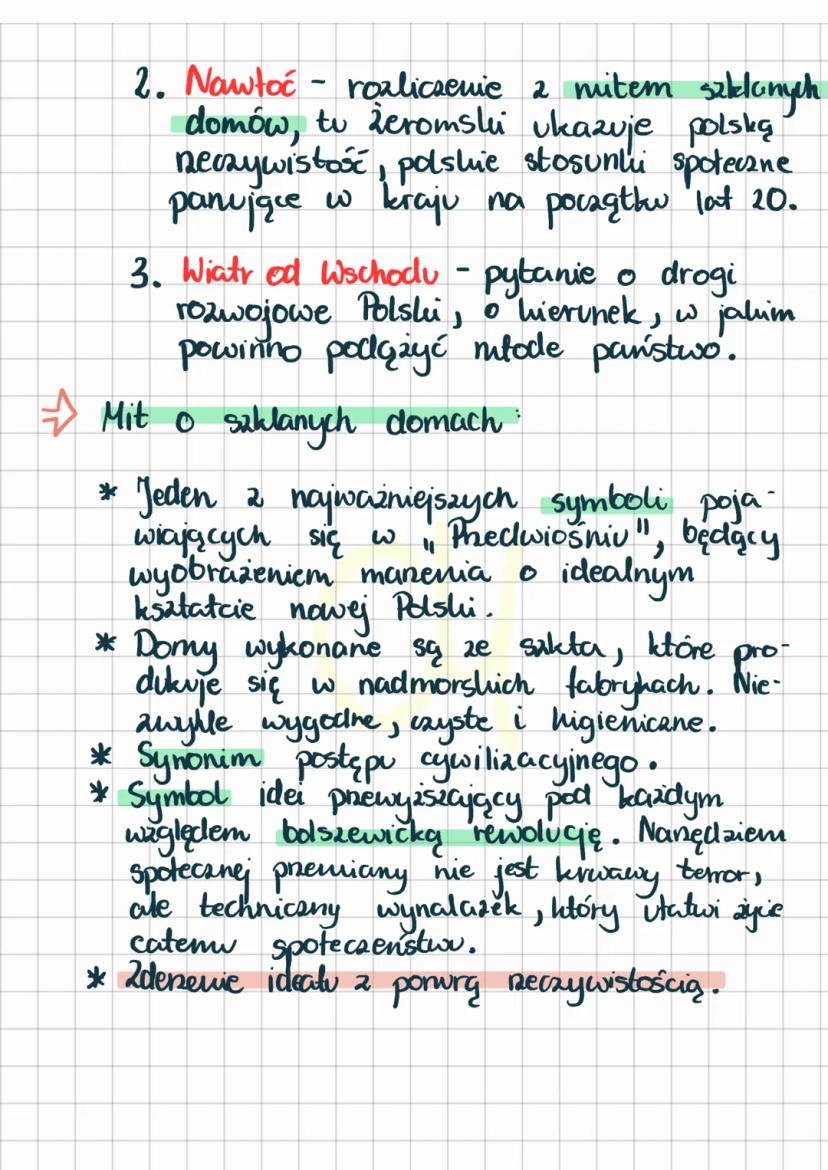 2. Nawłoć - rozliczenie z mitem szklanych
domów, tu Żeromski ukazuje polską
rzeczywistość, polskie stosunki społeczne
panujące w kraju na początku lat 20.
3. Wiatr od Wschodu - pytanie o drogi
rozwojowe Polski, o kierunek, w jakim
powinno podążyć młode państwo.
⇒ Mit o szklanych domach:
* Jeden z najważniejszych symboli poja-
wiających się w „Przedwiośniu", będący
wyobrażeniem marzenia o idealnym
kształcie nowej Polski.
* Domy wykonane są ze szkła, które pro-
dukuje się w nadmorskich fabrykach. Nie-
zwykle wygodne, czyste i higieniczne.
* Synonim postępu cywilizacyjnego.
* Symbol idei przewyższający pod każdym
względem bolszewicką rewolucję. Narzędziem
społecznej przemiany nie jest krwawy terror,
ale techniczny wynalazek, który ułatwi życie
całemu społeczeństwu.
* Zderzenie ideału z ponurą rzeczywistością.